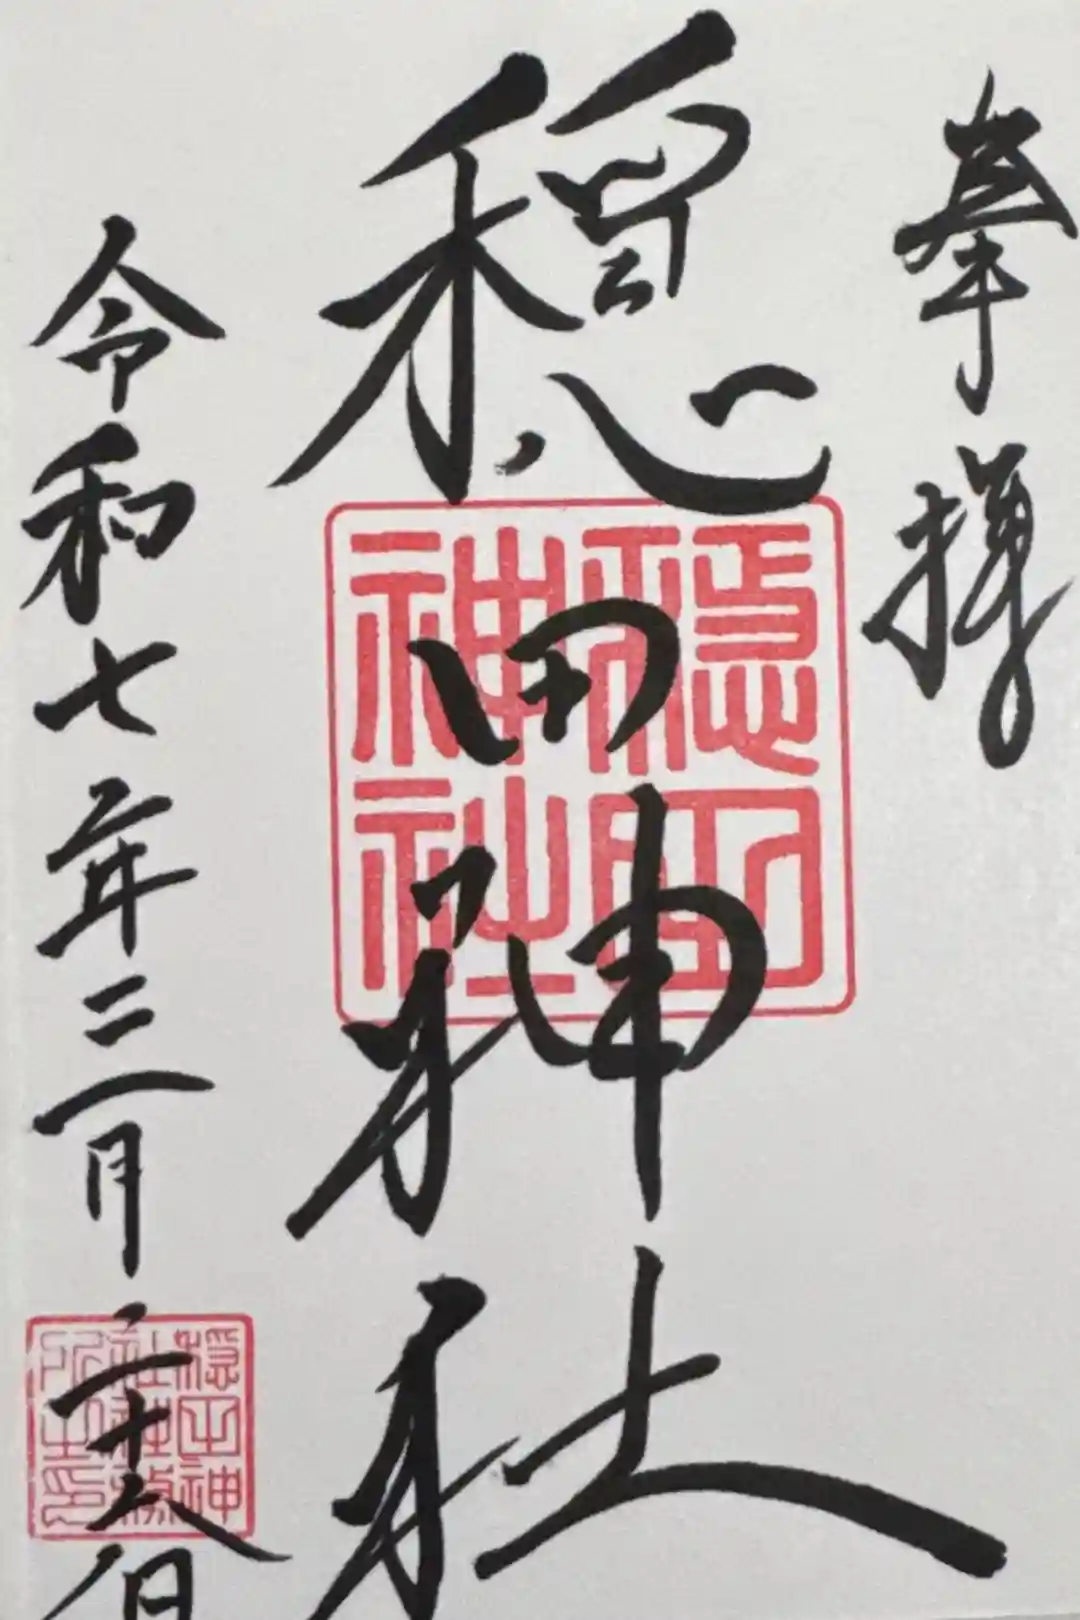 奉拝
穏田神社
穏田
神社
令和七年三月
穏田神
社社務
所之印